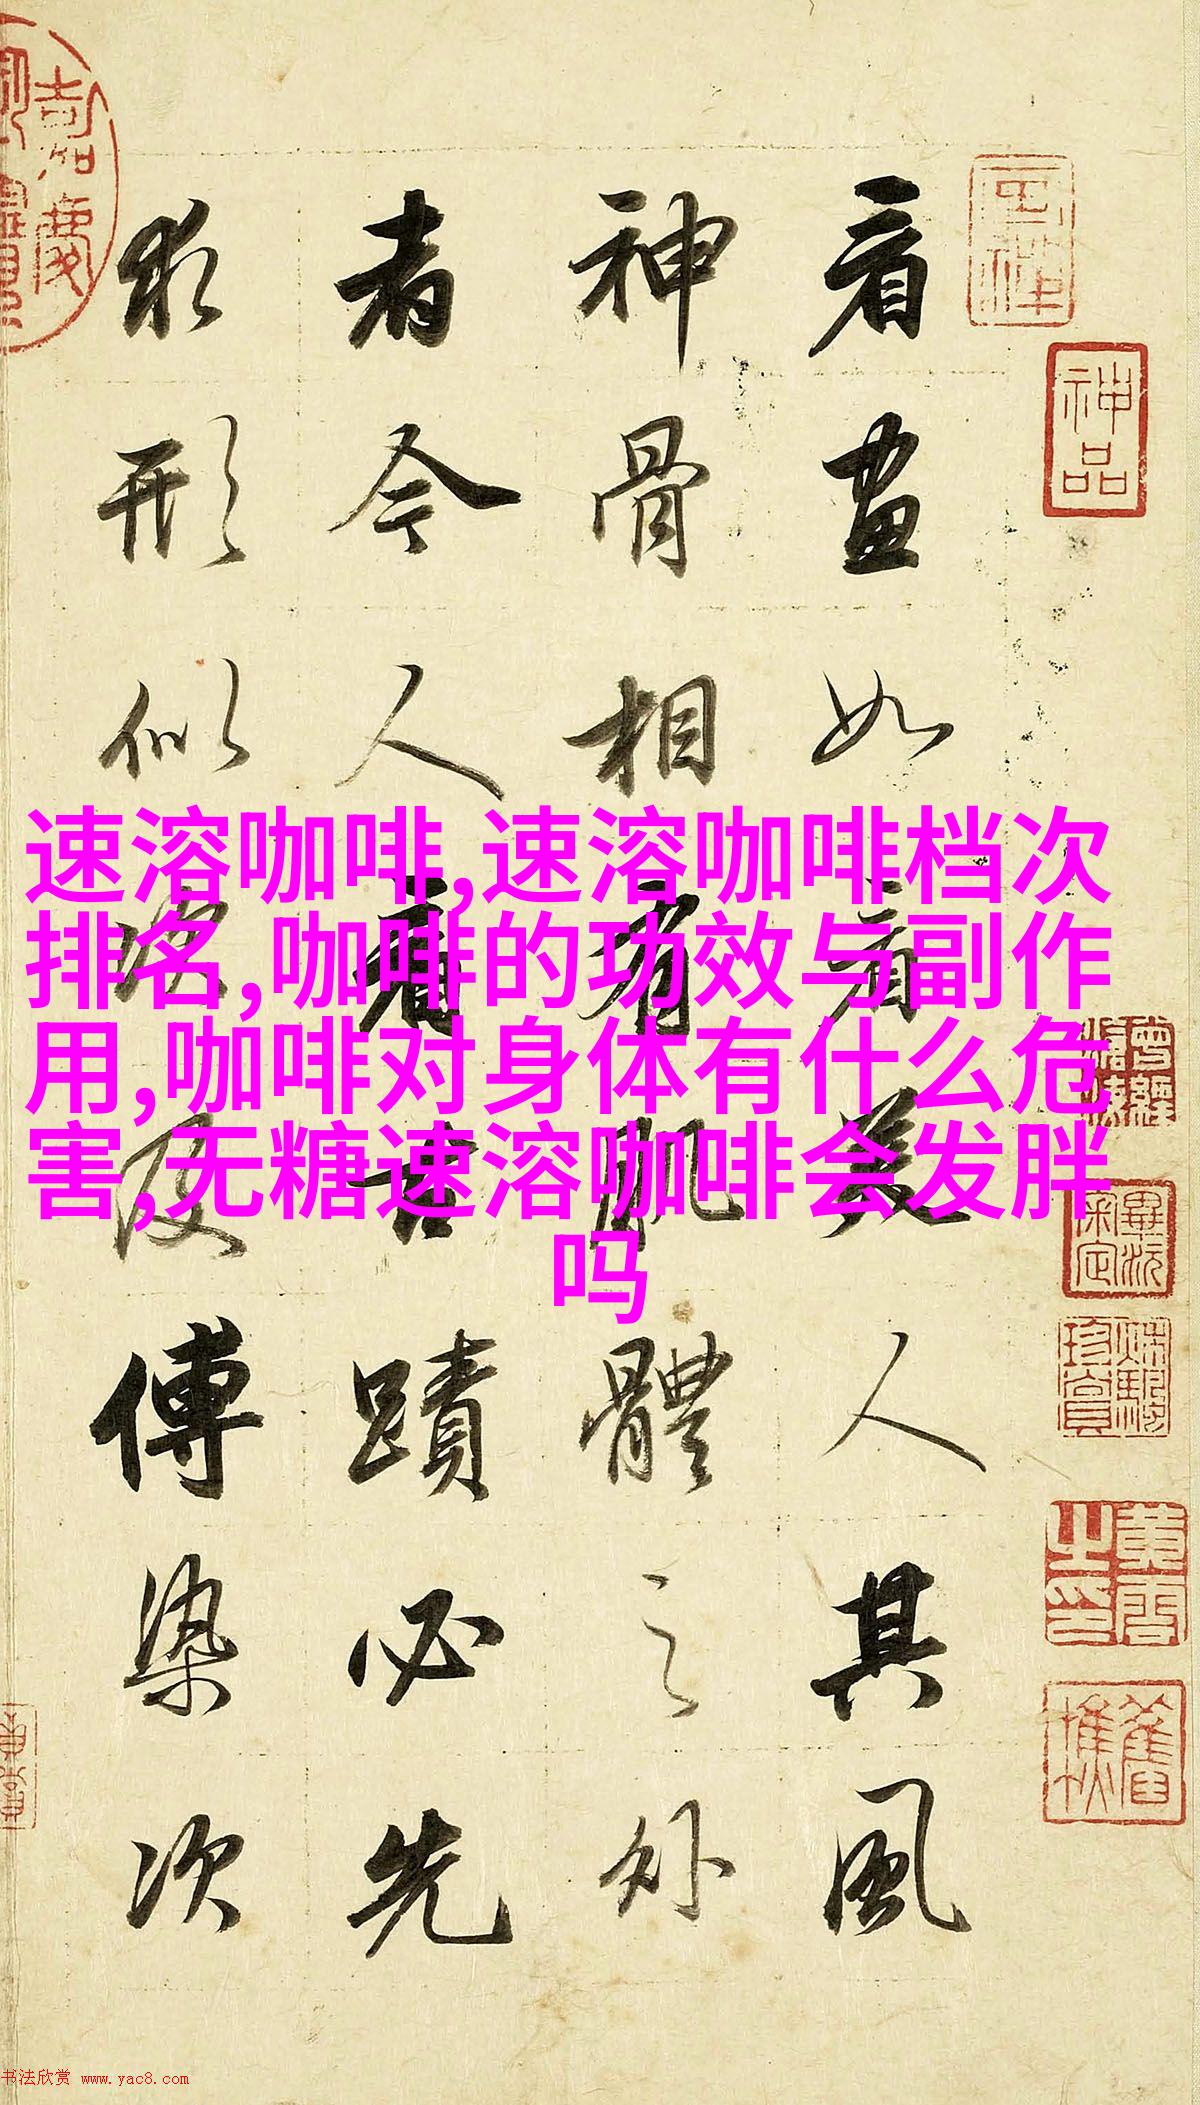 看畫如看美人其風
神骨相有肌體之外
者今人看古蹟必先
求形似次及傅染次
速溶咖啡,速溶咖啡档次
排名,咖啡的功效与副作
用,咖啡对身体有什么危
害,无糖速溶咖啡会发胖
吗
神品
书法欣赏 www.yac8.com